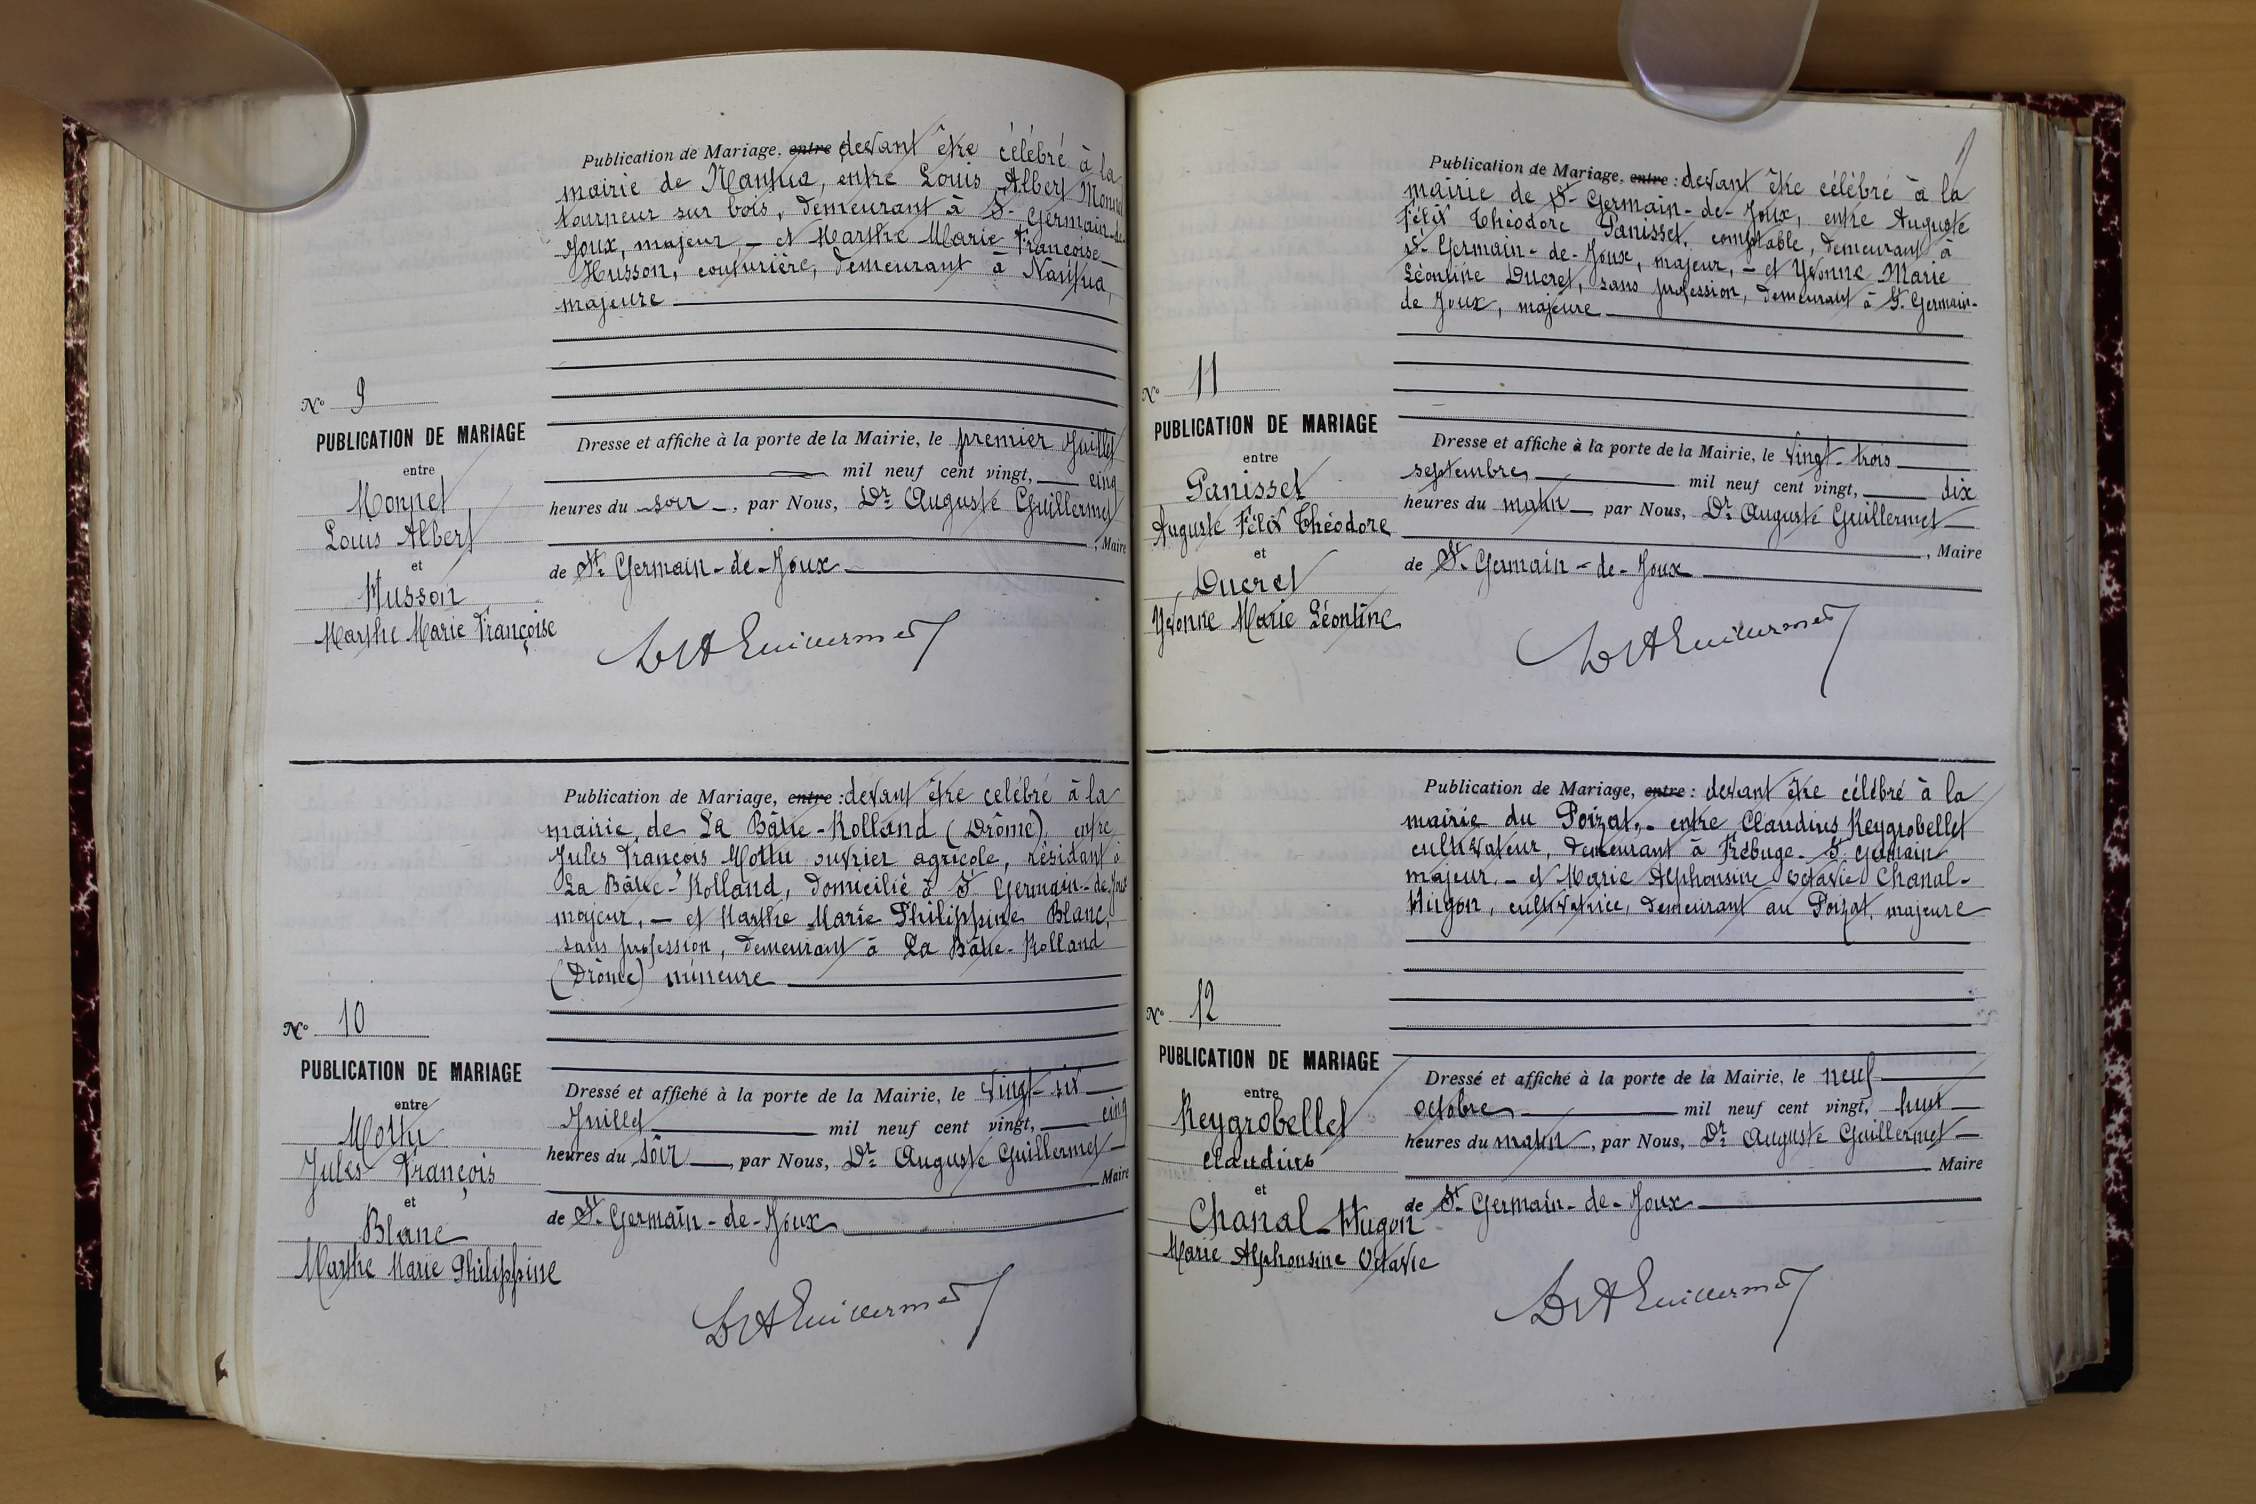 Publication de Mariage, entre devant être célébré à la
mairie de Nantua, entre Louis Albert Monnet
tourneur sur bois, demeurant à St Germain-de-
Joux, majeur, - et Marthe Marie Françoise
Husson, couturière, demeurant à Nantua,
majeure
N° 9
PUBLICATION DE MARIAGE
entre
Monnet
Louis Albert
et
Husson
Marthe Marie Françoise
Dresse et affiche à la porte de la Mairie, le premier Juillet
mil neuf cent vingt, cinq
heures du soir, par Nous, Dr Auguste Guillermet
, Maire
de St Germain-de-Joux
Dr A Guillermet
Publication de Mariage, entre : devant être célébré à la
mairie de La Bâtie-Rolland (Drôme), entre
Jules François Mottu ouvrier agricole, résidant à
La Bâtie-Rolland, domicilié à St Germain-de-Joux
majeur, - et Marthe Marie Philippine Blanc,
sans profession, demeurant à La Bâtie-Rolland
(Drôme) mineure
N° 10
PUBLICATION DE MARIAGE
entre
Mottu
Jules François
et
Blanc
Marthe Marie Philippine
Dressé et affiché à la porte de la Mairie, le vingt-six
Juillet mil neuf cent vingt, cinq
heures du soir, par Nous, Dr Auguste Guillermet
Maire
de St Germain-de-Joux
Dr A Guillermet
Publication de Mariage, entre : devant être célébré à la
mairie de St Germain-de-Joux, entre Auguste
Félix Théodore Panisset, comptable, demeurant à
St Germain-de-Joux, majeur, - et Yvonne Marie
Léontine Ducret, sans profession, demeurant à St Germain-
de Joux, majeure
N° 11
PUBLICATION DE MARIAGE
entre
Panisset
Auguste Félix Théodore
et
Ducret
Yvonne Marie Léontine
Dresse et affiche à la porte de la Mairie, le vingt-trois
septembre mil neuf cent vingt, dix
heures du matin par Nous, Dr Auguste Guillermet
, Maire
de St Germain-de-Joux
Dr A Guillermet
Publication de Mariage, entre : devant être célébré à la
mairie du Poizat, - entre Claudius Reygrobellet
cultivateur, demeurant à Trébuge-St Germain
majeur, - et Marie Alphonsine Octavie Chanal-
Hugon, cultivatrice, demeurant au Poizat, majeure
N° 12
PUBLICATION DE MARIAGE
entre
Reygrobellet
Claudius
et
Chanal-Hugon
Marie Alphonsine Octavie
Dressé et affiché à la porte de la Mairie, le neuf
octobre mil neuf cent vingt, huit
heures du matin, par Nous, Dr Auguste Guillermet
Maire
de St Germain-de-Joux
Dr A Guillermet